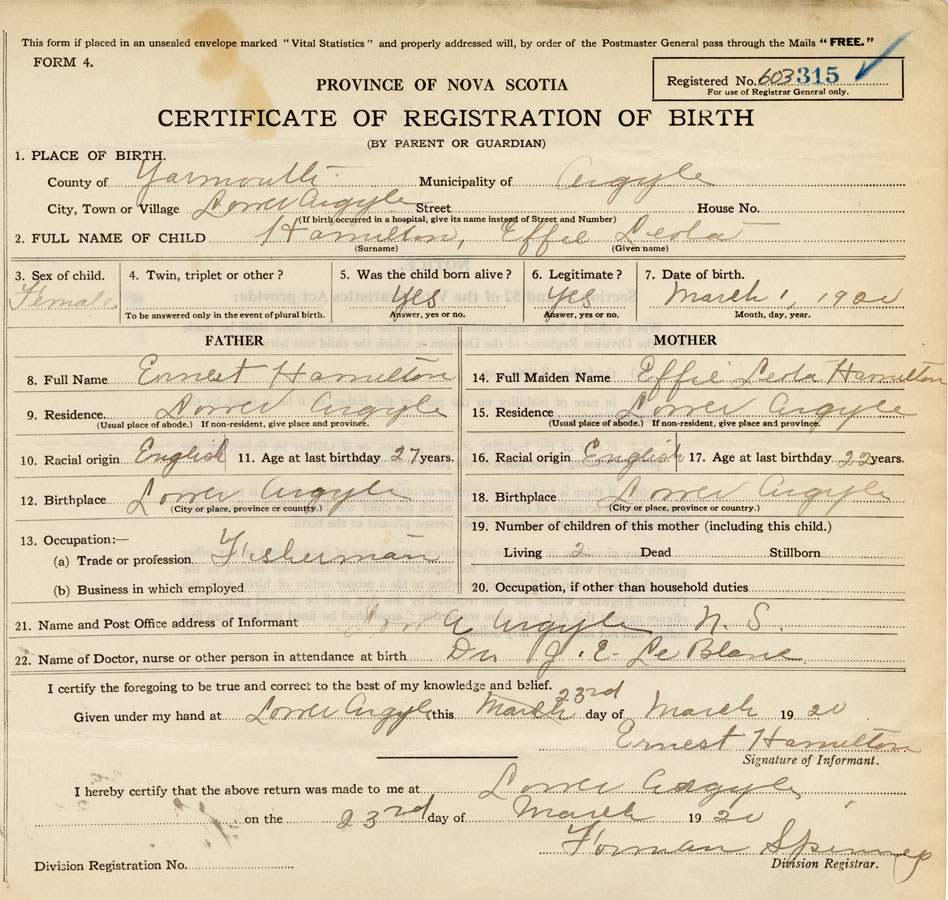 This form if placed in an unsealed envelope marked "Vital Statistics" and properly addressed will, by order of the Postmaster General pass through the Mails "FREE."
FORM 4.
Registered No. 603 315
For use of Registrar General only.
PROVINCE OF NOVA SCOTIA
CERTIFICATE OF REGISTRATION OF BIRTH
(BY PARENT OR GUARDIAN)
1. PLACE OF BIRTH.
County of Yarmouth Municipality of Argyle
City, Town or Village Lower Argyle Street House No.
(If birth occurred in a hospital, give its name instead of Street and Number)
2. FULL NAME OF CHILD Hamilton, Effie Leola
(Surname) (Given name)
3. Sex of child. 4. Twin, triplet or other? 5. Was the child born alive? 6. Legitimate? 7. Date of birth.
Female Yes Yes March 1, 1920
To be answered only in the event of plural birth. Answer, yes or no. Answer, yes or no. Month, day, year.
FATHER MOTHER
8. Full Name Ernest Hamilton 14. Full Maiden Name Effie Leola Hamilton
9. Residence. Lower Argyle 15. Residence Lower Argyle
(Usual place of abode.) If non-resident, give place and province. (Usual place of abode.) If non-resident, give place and province.
10. Racial origin English 11. Age at last birthday 27 years. 16. Racial origin English 17. Age at last birthday 22 years.
12. Birthplace Lower Argyle 18. Birthplace Lower Argyle
(City or place, province or country.) (City or place, province or country.)
13. Occupation:— 19. Number of children of this mother (including this child.)
(a) Trade or profession Fisherman Living 2 Dead Stillborn
(b) Business in which employed 20. Occupation, if other than household duties
21. Name and Post Office address of Informant Lower Argyle N. S.
22. Name of Doctor, nurse or other person in attendance at birth Dr. J. E. LeBlanc
I certify the foregoing to be true and correct to the best of my knowledge and belief.
Given under my hand at Lower Argyle this March 23rd day of March 1920
Ernest Hamilton
Signature of Informant.
I hereby certify that the above return was made to me at Lower Argyle
on the 23rd day of March 1920
Forman Spinney
Division Registrar.
Division Registration No.